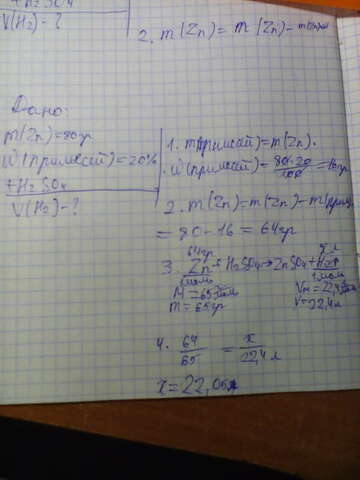 +H₂SO₄
V(H₂) - ?
2. m(Zn) = m(Zn) -
Дано:
m(Zn) = 80гр
W(примесей) = 20%
+H₂SO₄
V(H₂) - ?
1. m(примесей) = m(Zn) ·
· W(примесей) = 80·20/100 = 16гр
2. m(Zn) = m(Zn) - m(прим)
= 80 - 16 = 64гр
64гр x л
3. Zn + H₂SO₄ → ZnSO₄ + H₂↑
1моль 1моль
M = 65 Vм = 22,4
m = 65гр V = 22,4л
4. 64/65 = x/22,4л
x = 22,05л